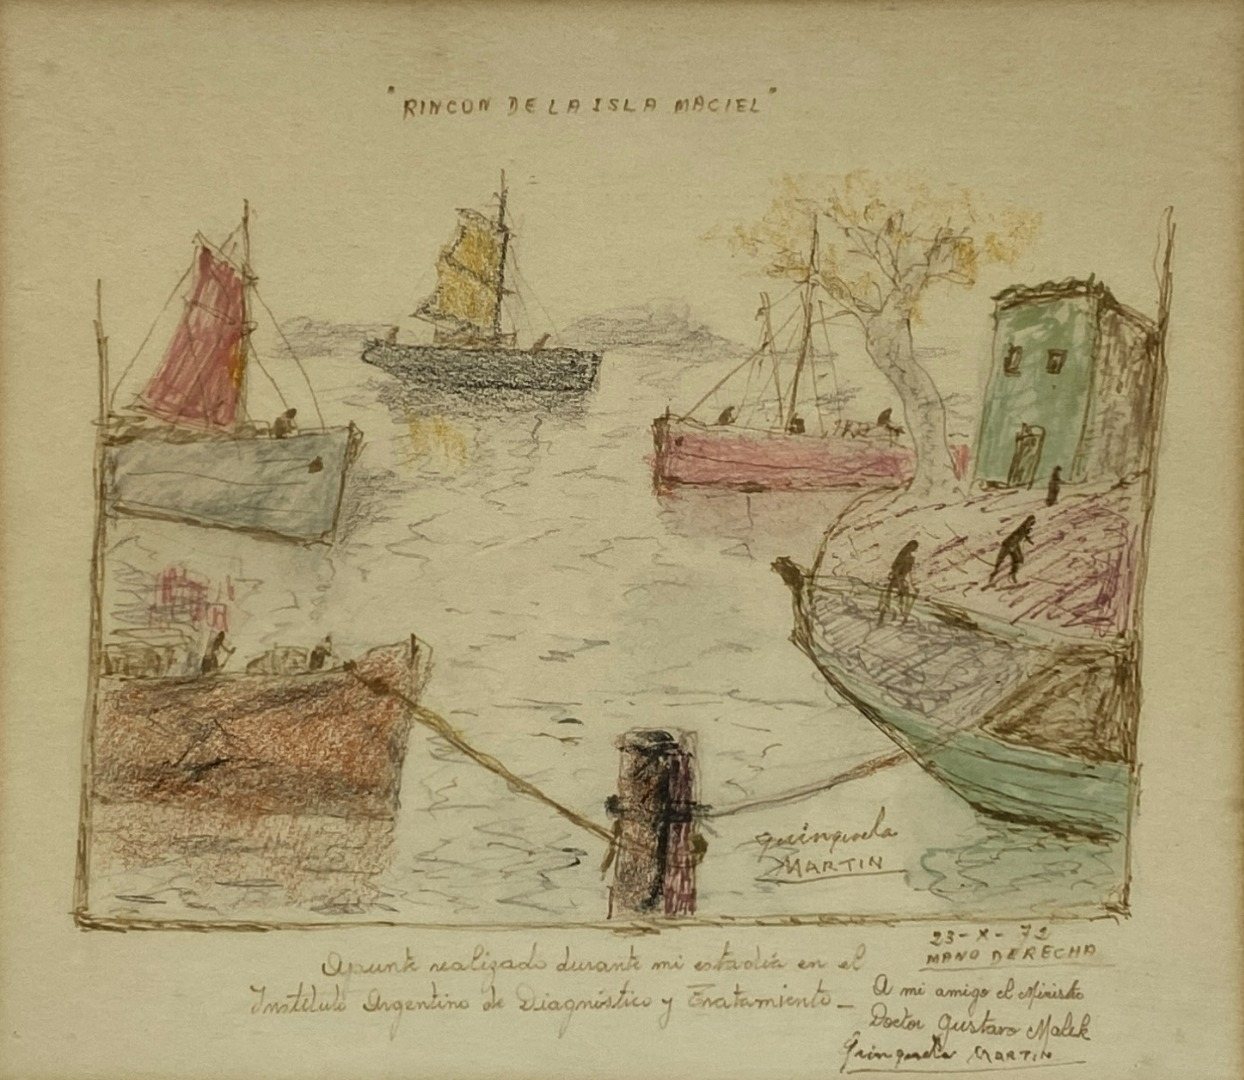 "RINCON DE LA ISLA MACIEL"
quinquela
MARTIN
23-X-72
MANO DERECHA
Apunte realizado durante mi estadía en el
Instituto Argentino de Diagnóstico y Tratamiento_
A mi amigo el Ministro
Doctor Gustavo Malek
Quinquela MARTIN